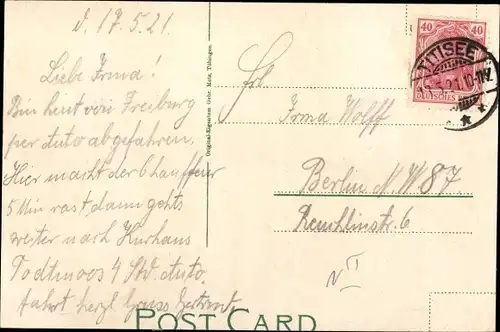 d. 17.5.21.
Liebe Irma!
Bin heut von Freiburg
per Auto abgefahren.
Hier macht der Chauffeur
5 Min rast dann gehts
weiter nach Kurhaus
Todtmoos 4 Std. Auto
fahrt herzl. Gruss Gertrud.
Original-Eigentum Gebr. Metz, Tübingen.
40 40
DEUTSCHES
TITISEE
10-11V.
Frl.
Irma Wolff
Berlin N.W 87
Reuchlinstr. 6
N II
POST CARD